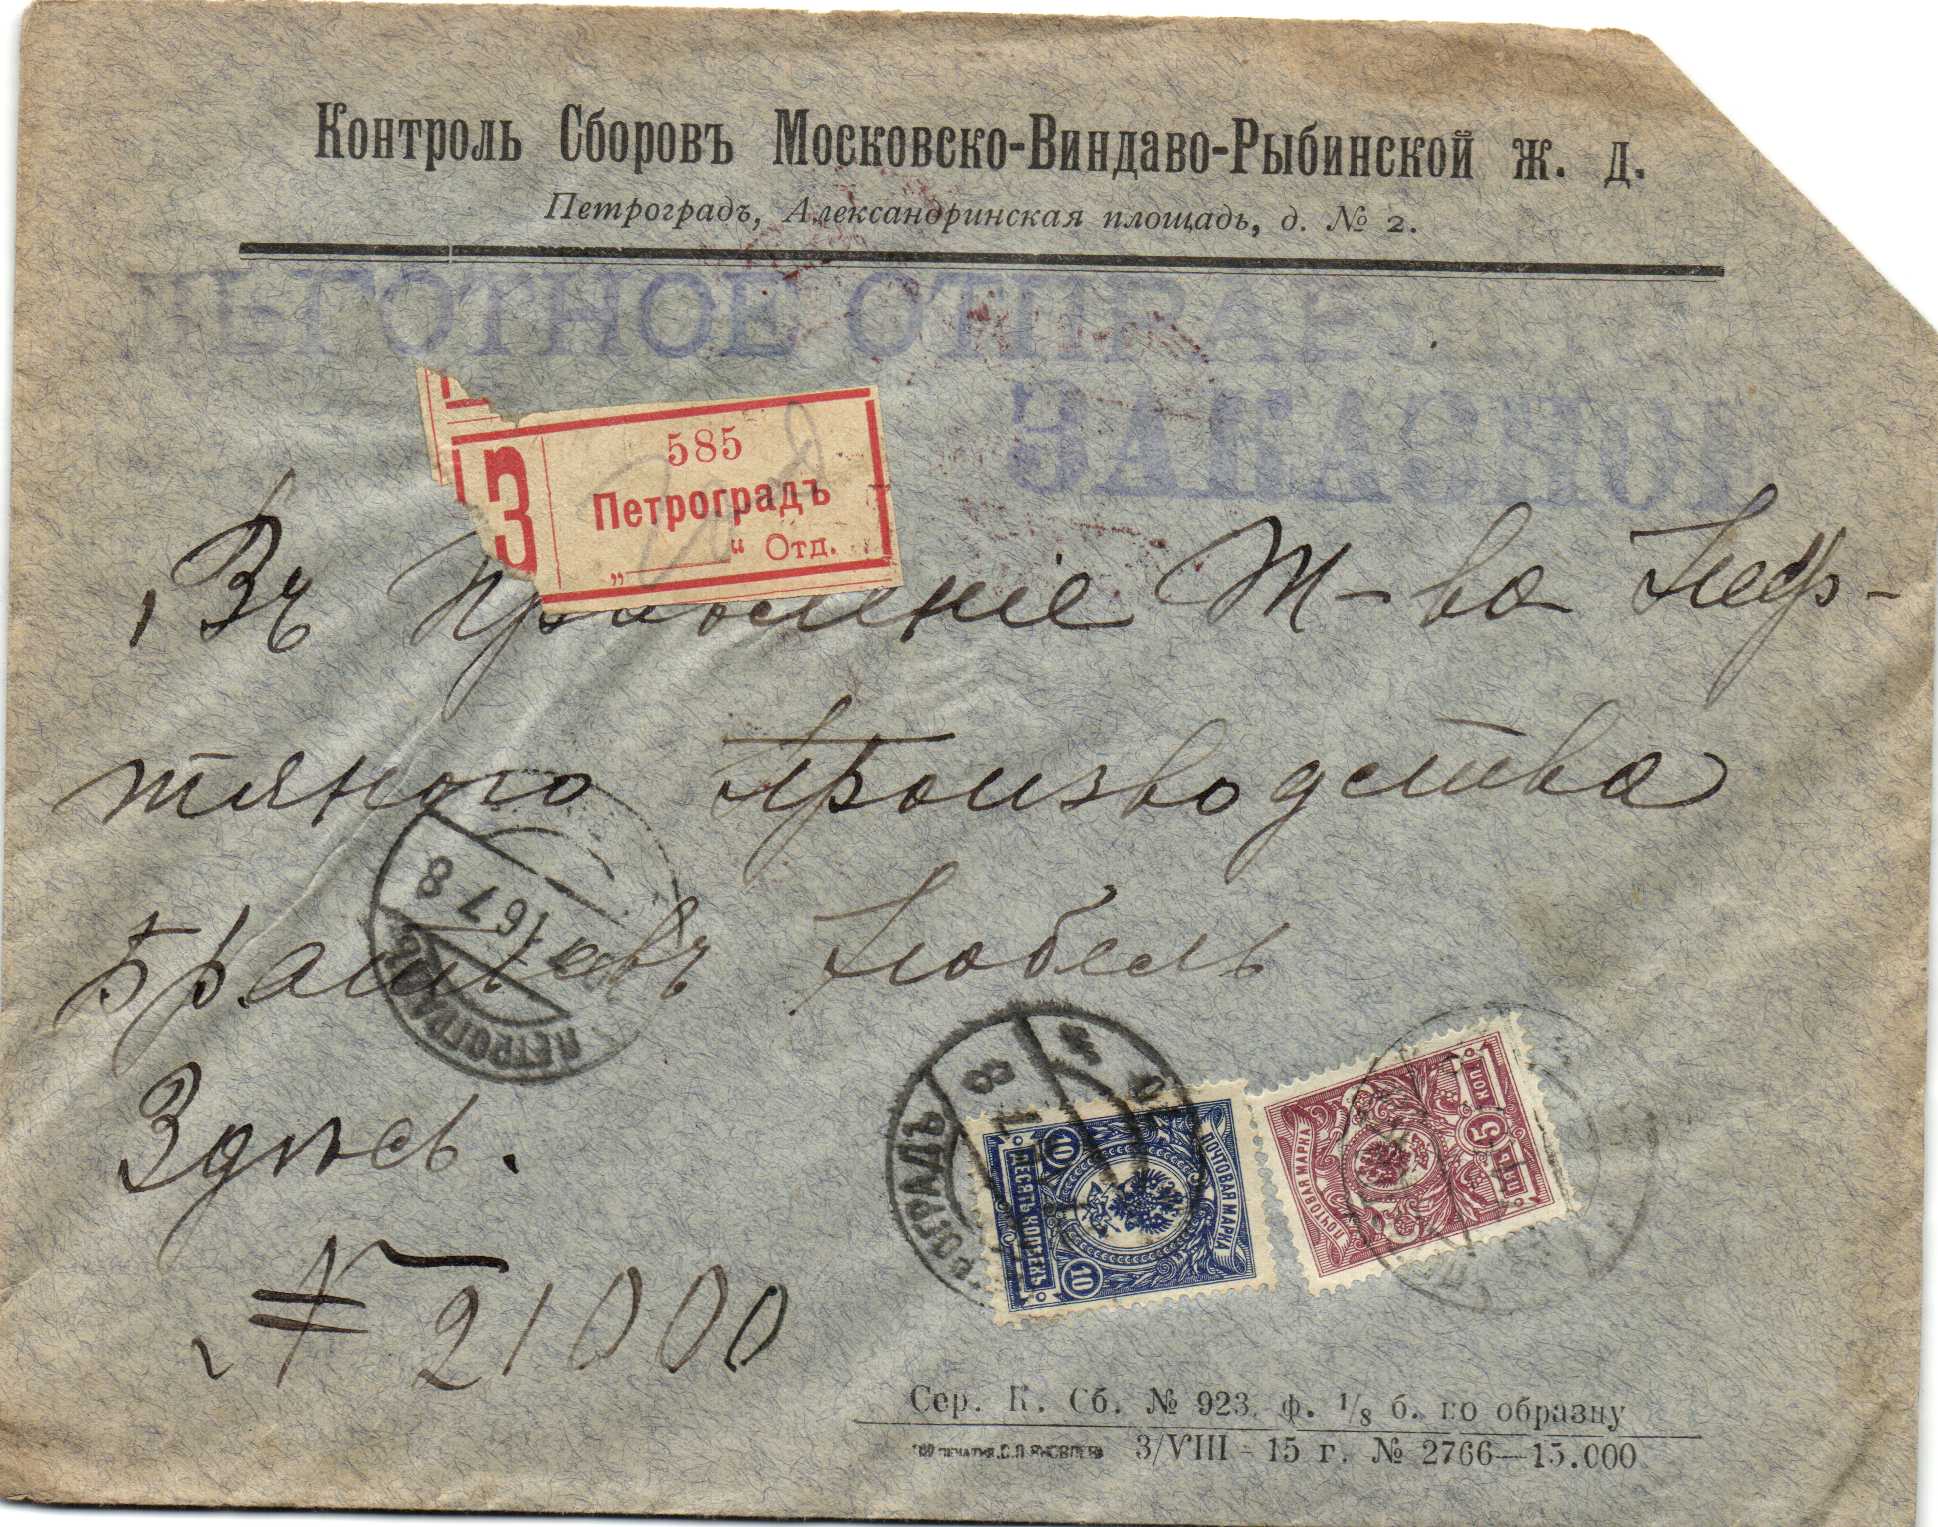 Контроль Сборовъ Московско-Виндаво-Рыбинской ж. д.
Петроградъ, Александринская площадь, д. № 2.
ЛЬГОТНОЕ
ЗАКАЗНОЕ
З
585
Петроградъ
„ “ Отд.
Въ Правленіе Т-во Неф-
тяного Производства
Братьевъ Нобель
Здѣсь.
№ 21000
ПЕТРОГРАДЪ
16 7 8
ПОЧТОВАЯ МАРКА
10
ДЕСЯТЬ КОПѢЕКЪ
10
ПОЧТОВАЯ МАРКА
ПЯТЬ 5 КОП
Сер. К. Сб. № 923. ф. 1/8 б. по образцу
3/VIII - 15 г. № 2766—15.000